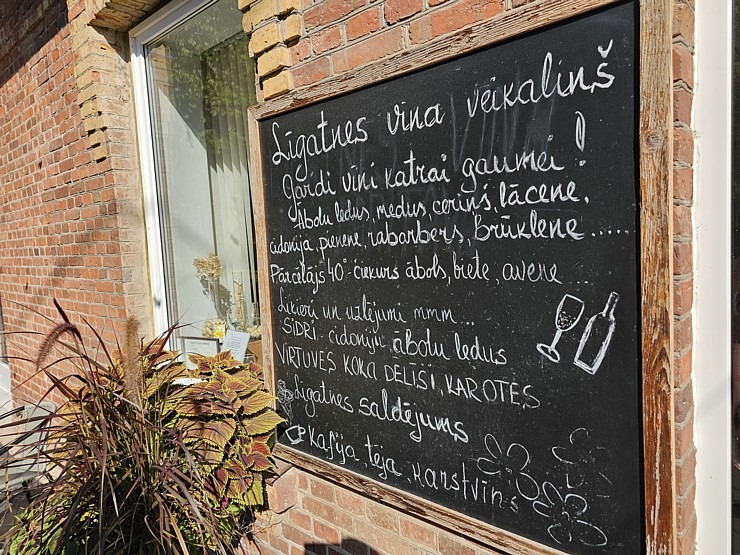 Līgatnes vīna veikaliņš
Gardi vīni katrai gaumei!
Ābolu ledus, medus, ceriņš, lācene,
cidonija, pienene, rabarbers, Brūklene.....
Pārcēlājs 40° - čiekurs, ābols, biete, avene...
Liķieri un uzlējumi mmm...
SIDRI - cidoniju, ābolu ledus
VIRTUVES KOKA DĒLĪŠI, KAROTES
Līgatnes saldējums
Kafija, tēja, Karstvīns